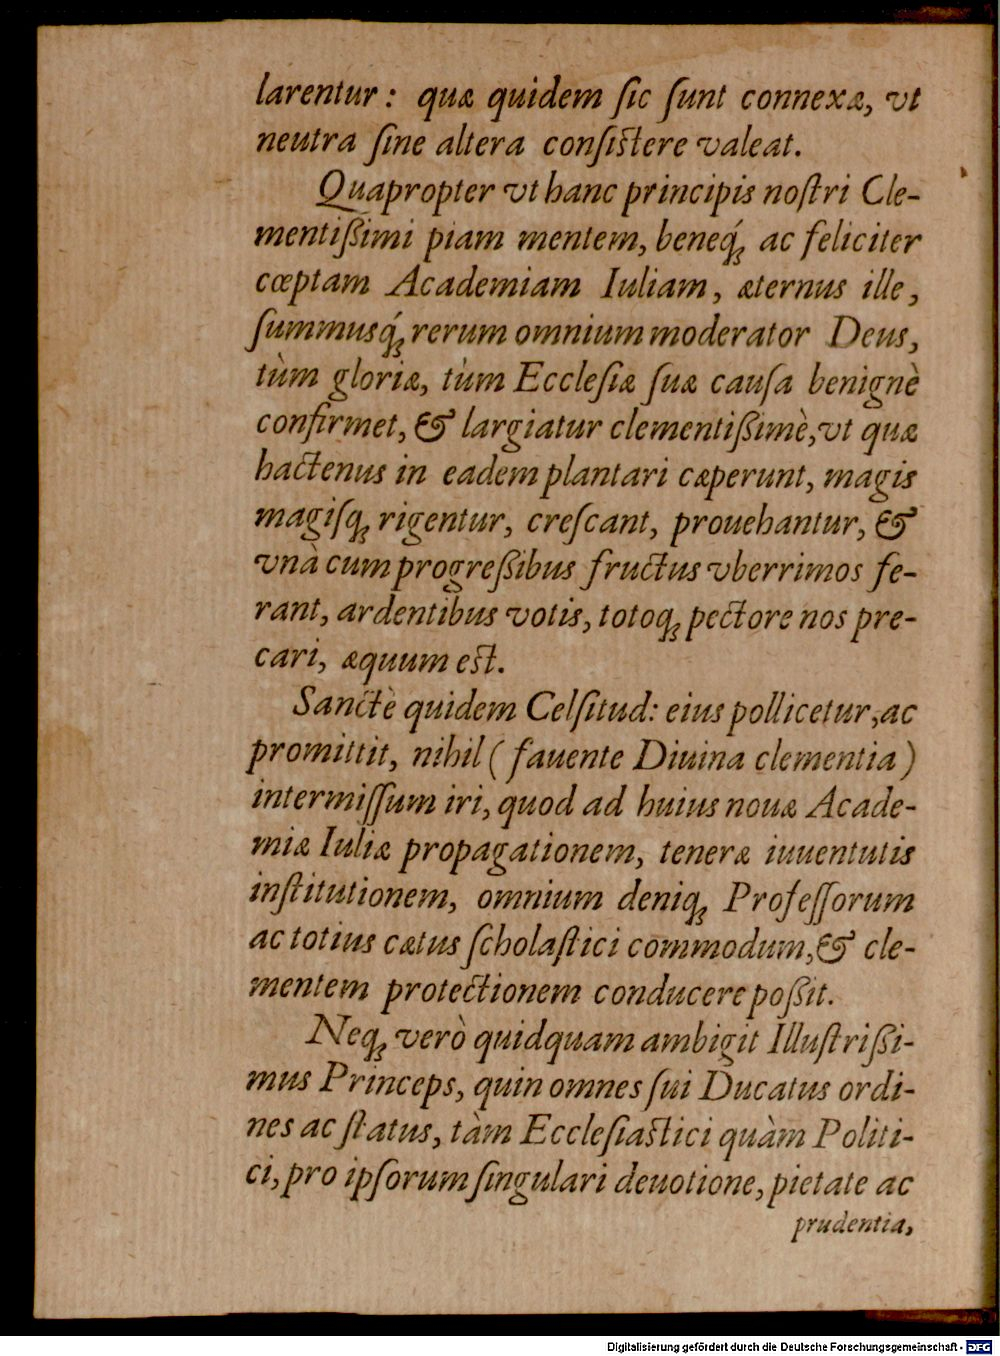 larentur: quæ quidem ſic ſunt connexæ, vt
neutra ſine altera conſiſtere valeat.
Quapropter vt hanc principis noſtri Cle-
mentißimi piam mentem, beneq́ꝫ ac feliciter
cœptam Academiam Iuliam, æternus ille,
ſummusq́ꝫ rerum omnium moderator Deus,
tùm gloriæ, tùm Eccleſiæ ſuæ cauſa benignè
confirmet, & largiatur clementißimè, vt quæ
hactenus in eadem plantari cæperunt, magis
magiſqꝫ rigentur, creſcant, prouehantur, &
vnà cum progreßibus fructus vberrimos fe-
rant, ardentibus votis, totoqꝫ pectore nos pre-
cari, æquum eſt.
Sanctè quidem Celſitud: eius pollicetur, ac
promittit, nihil (fauente Diuina clementia)
intermiſſum iri, quod ad huius nouæ Acade-
miæ Iuliæ propagationem, teneræ iuuentutis
inſtitutionem, omnium deniqꝫ Profeſſorum
ac totius cætus ſcholaſtici commodum, & cle-
mentem protectionem conducere poßit.
Neqꝫ verò quidquam ambigit Illuſtrißi-
mus Princeps, quin omnes ſui Ducatus ordi-
nes ac ſtatus, tàm Eccleſiaſtici quàm Politi-
ci, pro ipſorum ſingulari deuotione, pietate ac
prudentia,
Digitalisierung gefördert durch die Deutsche Forschungsgemeinschaft - DFG